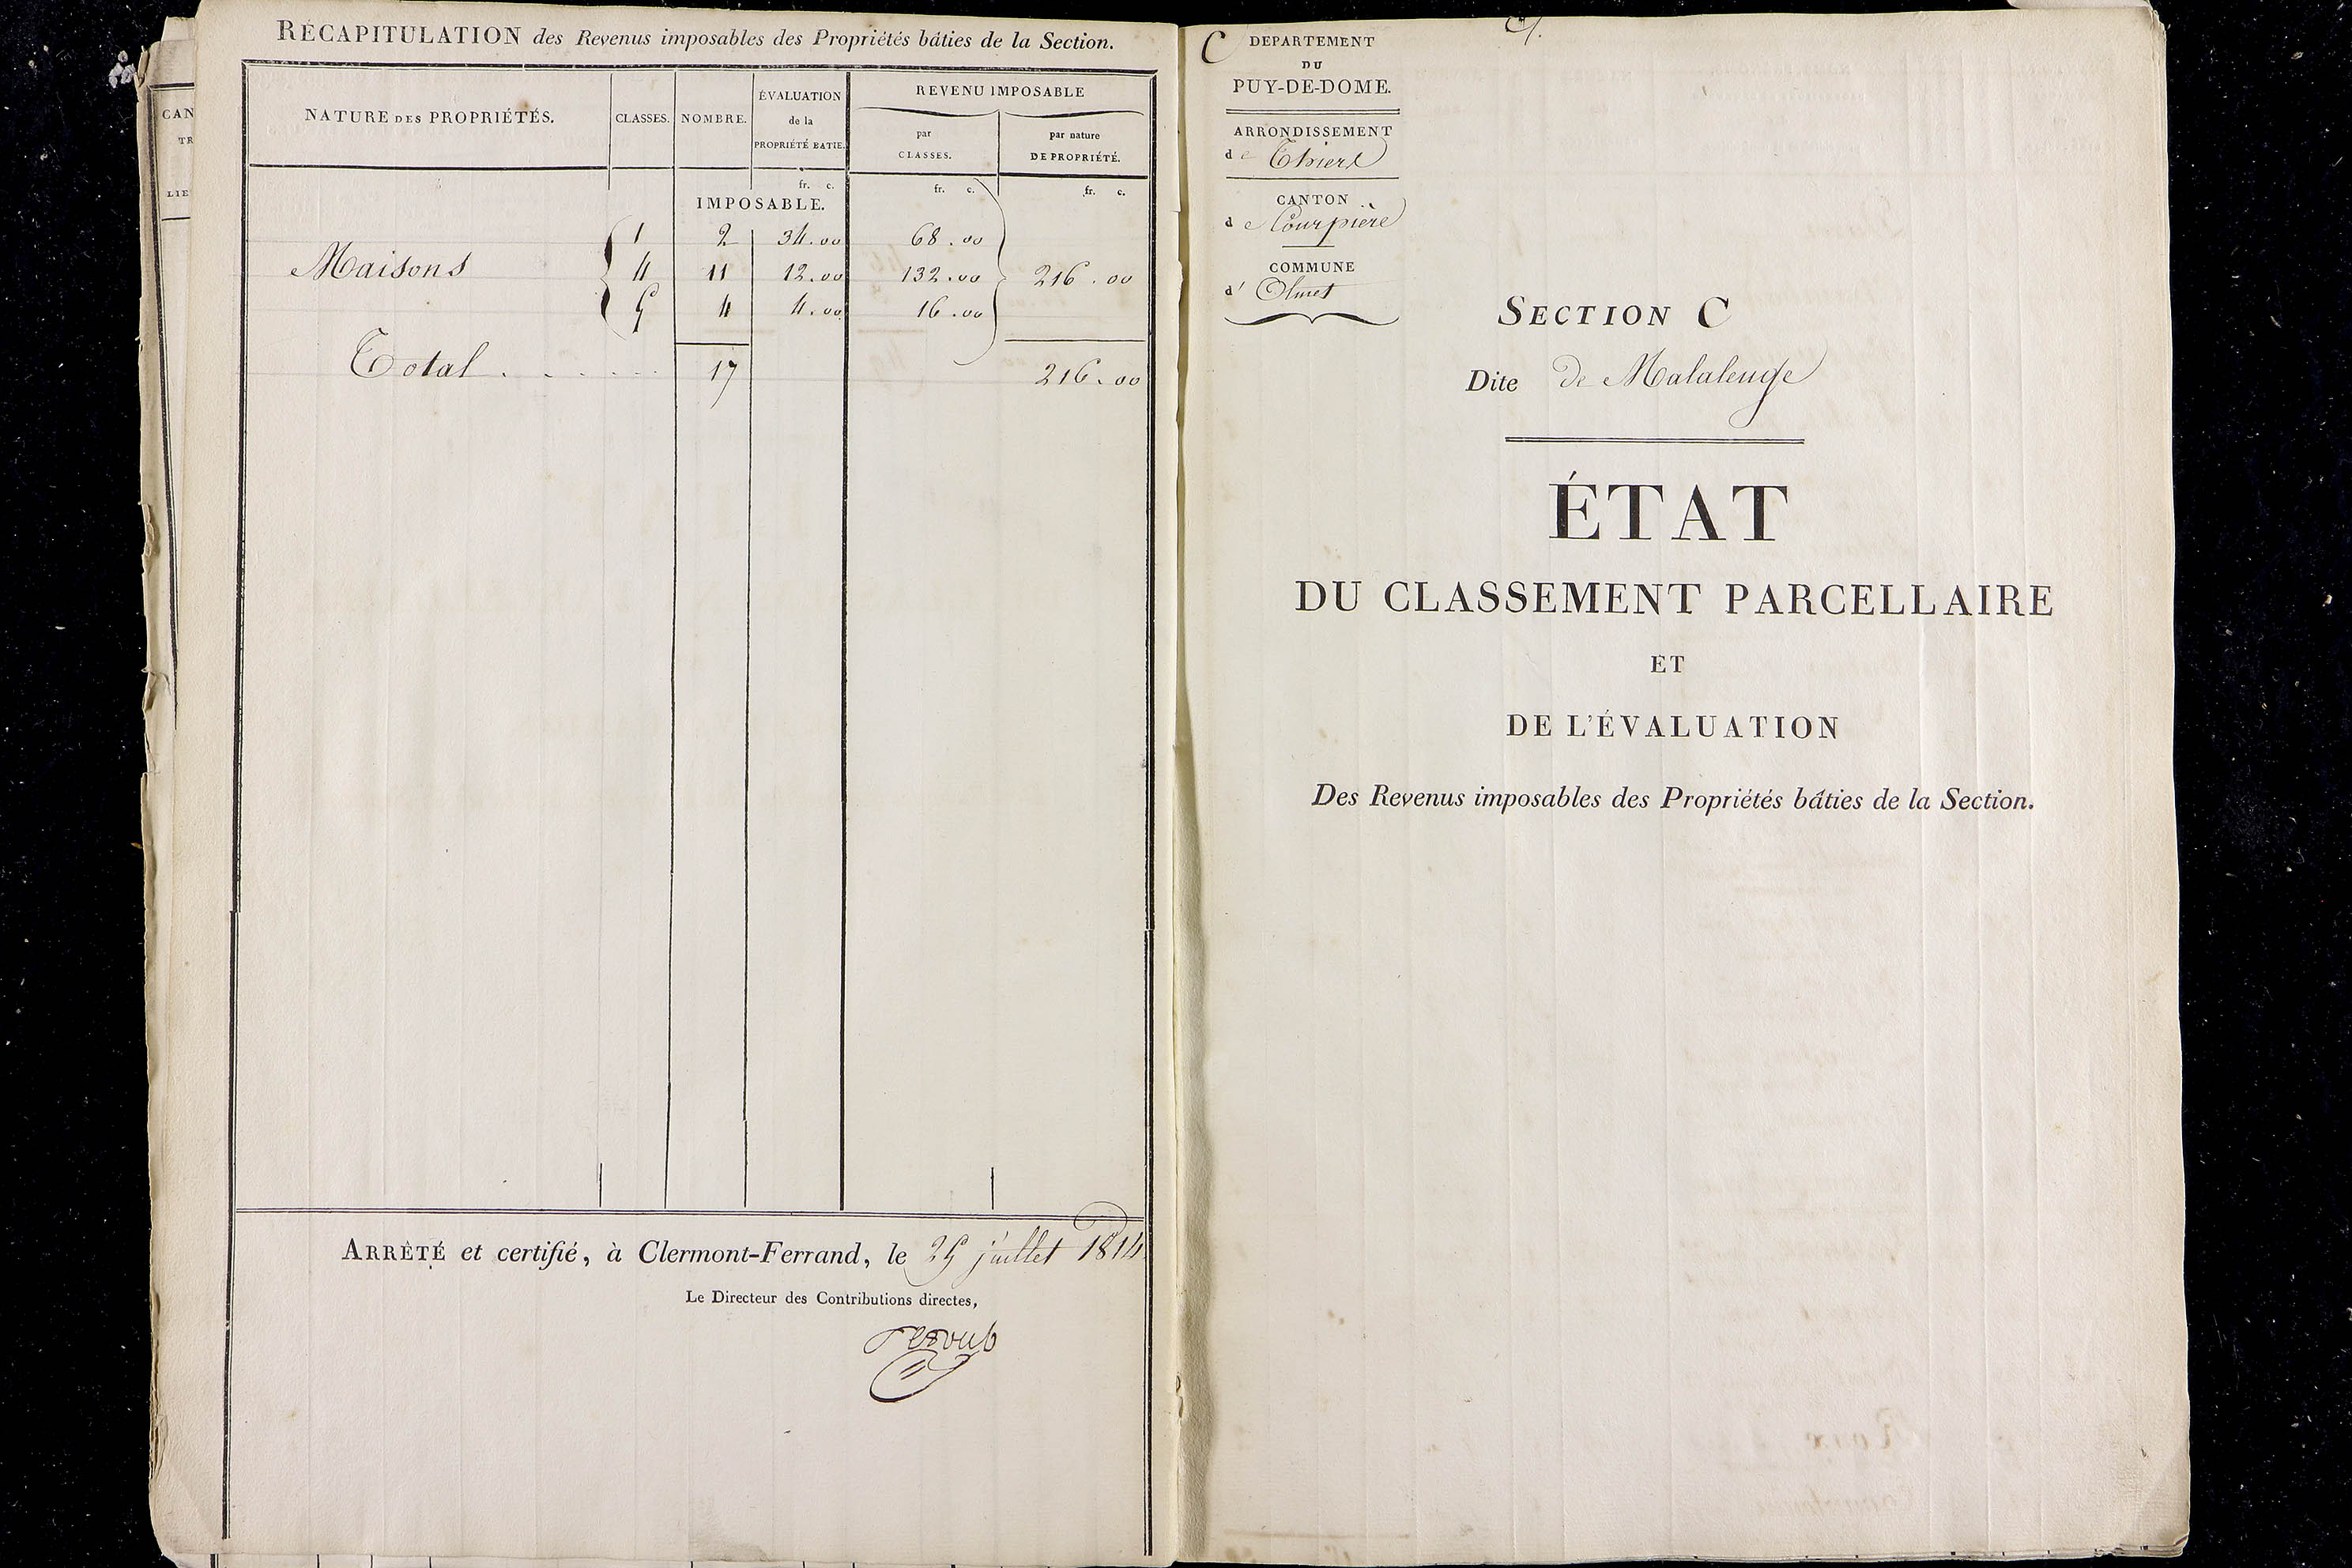 CAN
TR
LIE
RÉCAPITULATION des Revenus imposables des Propriétés bâties de la Section.
NATURE DES PROPRIÉTÉS.
CLASSES.
NOMBRE.
ÉVALUATION
de la
PROPRIÉTÉ BATIE.
REVENU IMPOSABLE
par
CLASSES.
par nature
DE PROPRIÉTÉ.
fr. c. fr. c. fr. c.
IMPOSABLE.
1 2 34.00 68.00
Maisons 4 11 12.00 132.00 216.00
5 4 4.00 16.00
Total . . . . . . 17 216.00
ARRÊTÉ et certifié, à Clermont-Ferrand, le 25 juillet 1814
Le Directeur des Contributions directes,
C
DEPARTEMENT
DU
PUY-DE-DOME.
ARRONDISSEMENT
de Thiers
CANTON
de Courpière
COMMUNE
d' Olmet
SECTION C
Dite de Malaleuge
ÉTAT
DU CLASSEMENT PARCELLAIRE
ET
DE L'ÉVALUATION
Des Revenus imposables des Propriétés bâties de la Section.